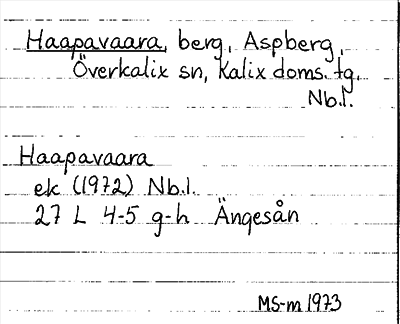 Haapavaara, berg, Aspberg,
Överkalix sn, Kalix doms. tg.
Nb.l.
Haapavaara
ek (1972) Nb.l.
27 L 4-5 g-h Ängesån
MS-m 1973